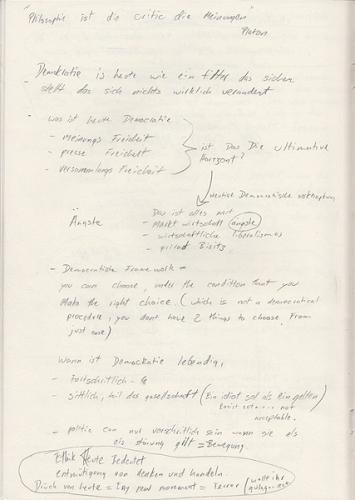 "Philosophie ist die critic die Meinungen"
Platon
Demokratie is heute wie ein filter das sicher
stellt das sich nichts wirklich verändert
- was ist heute Democratie
- meinungs Freiheit
- presse Freiheit
- versammlungs Freiheit
ist Das Die ultimative
Horizont?
Demokratische
Das ist alles mit
Ängste
- Markt wirtschaft (ängste)
- wirtschaftliche liberalismus
- privat Bisitz
- Democratische Frame work =
you can choose, under the condition that you
Make the right choice. (which is not a democratical
procedure, you dont have 2 things to choose From
just one)
Wann ist Demockratie lebendig,
- Fortschrittlich
- sittlich, teil das gesellschaft (Ein idiot sol als Ein gelten)
not
acceptable.
- politic can nur vorschritlich sein wann sie als
als störung gilt = Bewegung.
Ethik Heute Bedeutet
entmutigung von denken und handeln.
Druck von heute = Terror